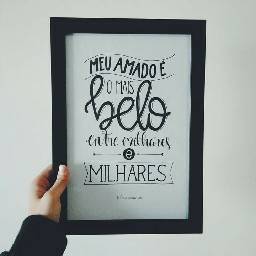 MEU AMADO É
O MAIS
belo
entre milhares
e
MILHARES